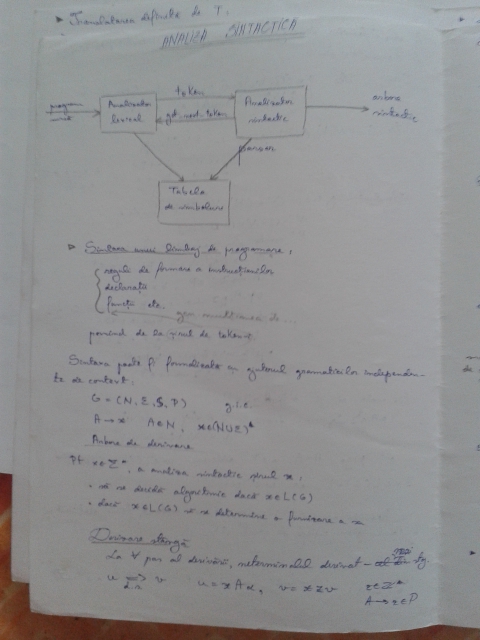 ▸ Translatarea definită de T.
ANALIZA SINTACTICĂ
program
sursă
Analizator
lexical
token
get next token
Analizator
sintactic
arbore
sintactic
parser
Tabela
de simboluri
▸ Sintaxa unui limbaj de programare:
reguli de formare a instrucțiunilor
declarații
funcții etc.
pornind de la șirul de tokeni
Sintaxa poate fi formalizată cu ajutorul gramaticilor independen-
te de context:
G = (N, Σ, S, P) g.i.c.
A → x A∈N, x∈(N∪Σ)*
Arbore de derivare
Pt x∈Σ*, a analiza sintactic șirul x:
• să se decidă algoritmic dacă x∈L(G)
• dacă x∈L(G) să se determine o furnizare a x
Derivare stângă
La ∀ pas al derivării, neterminalul derivat
u ⟹ v u = xAα, v = xzα z∈Σ*
A→z∈P